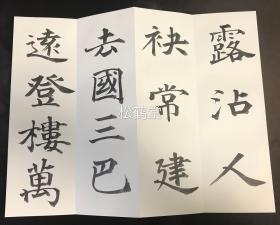 露沾人
袂常建
去國三巴
遠登樓萬
松鹤堂